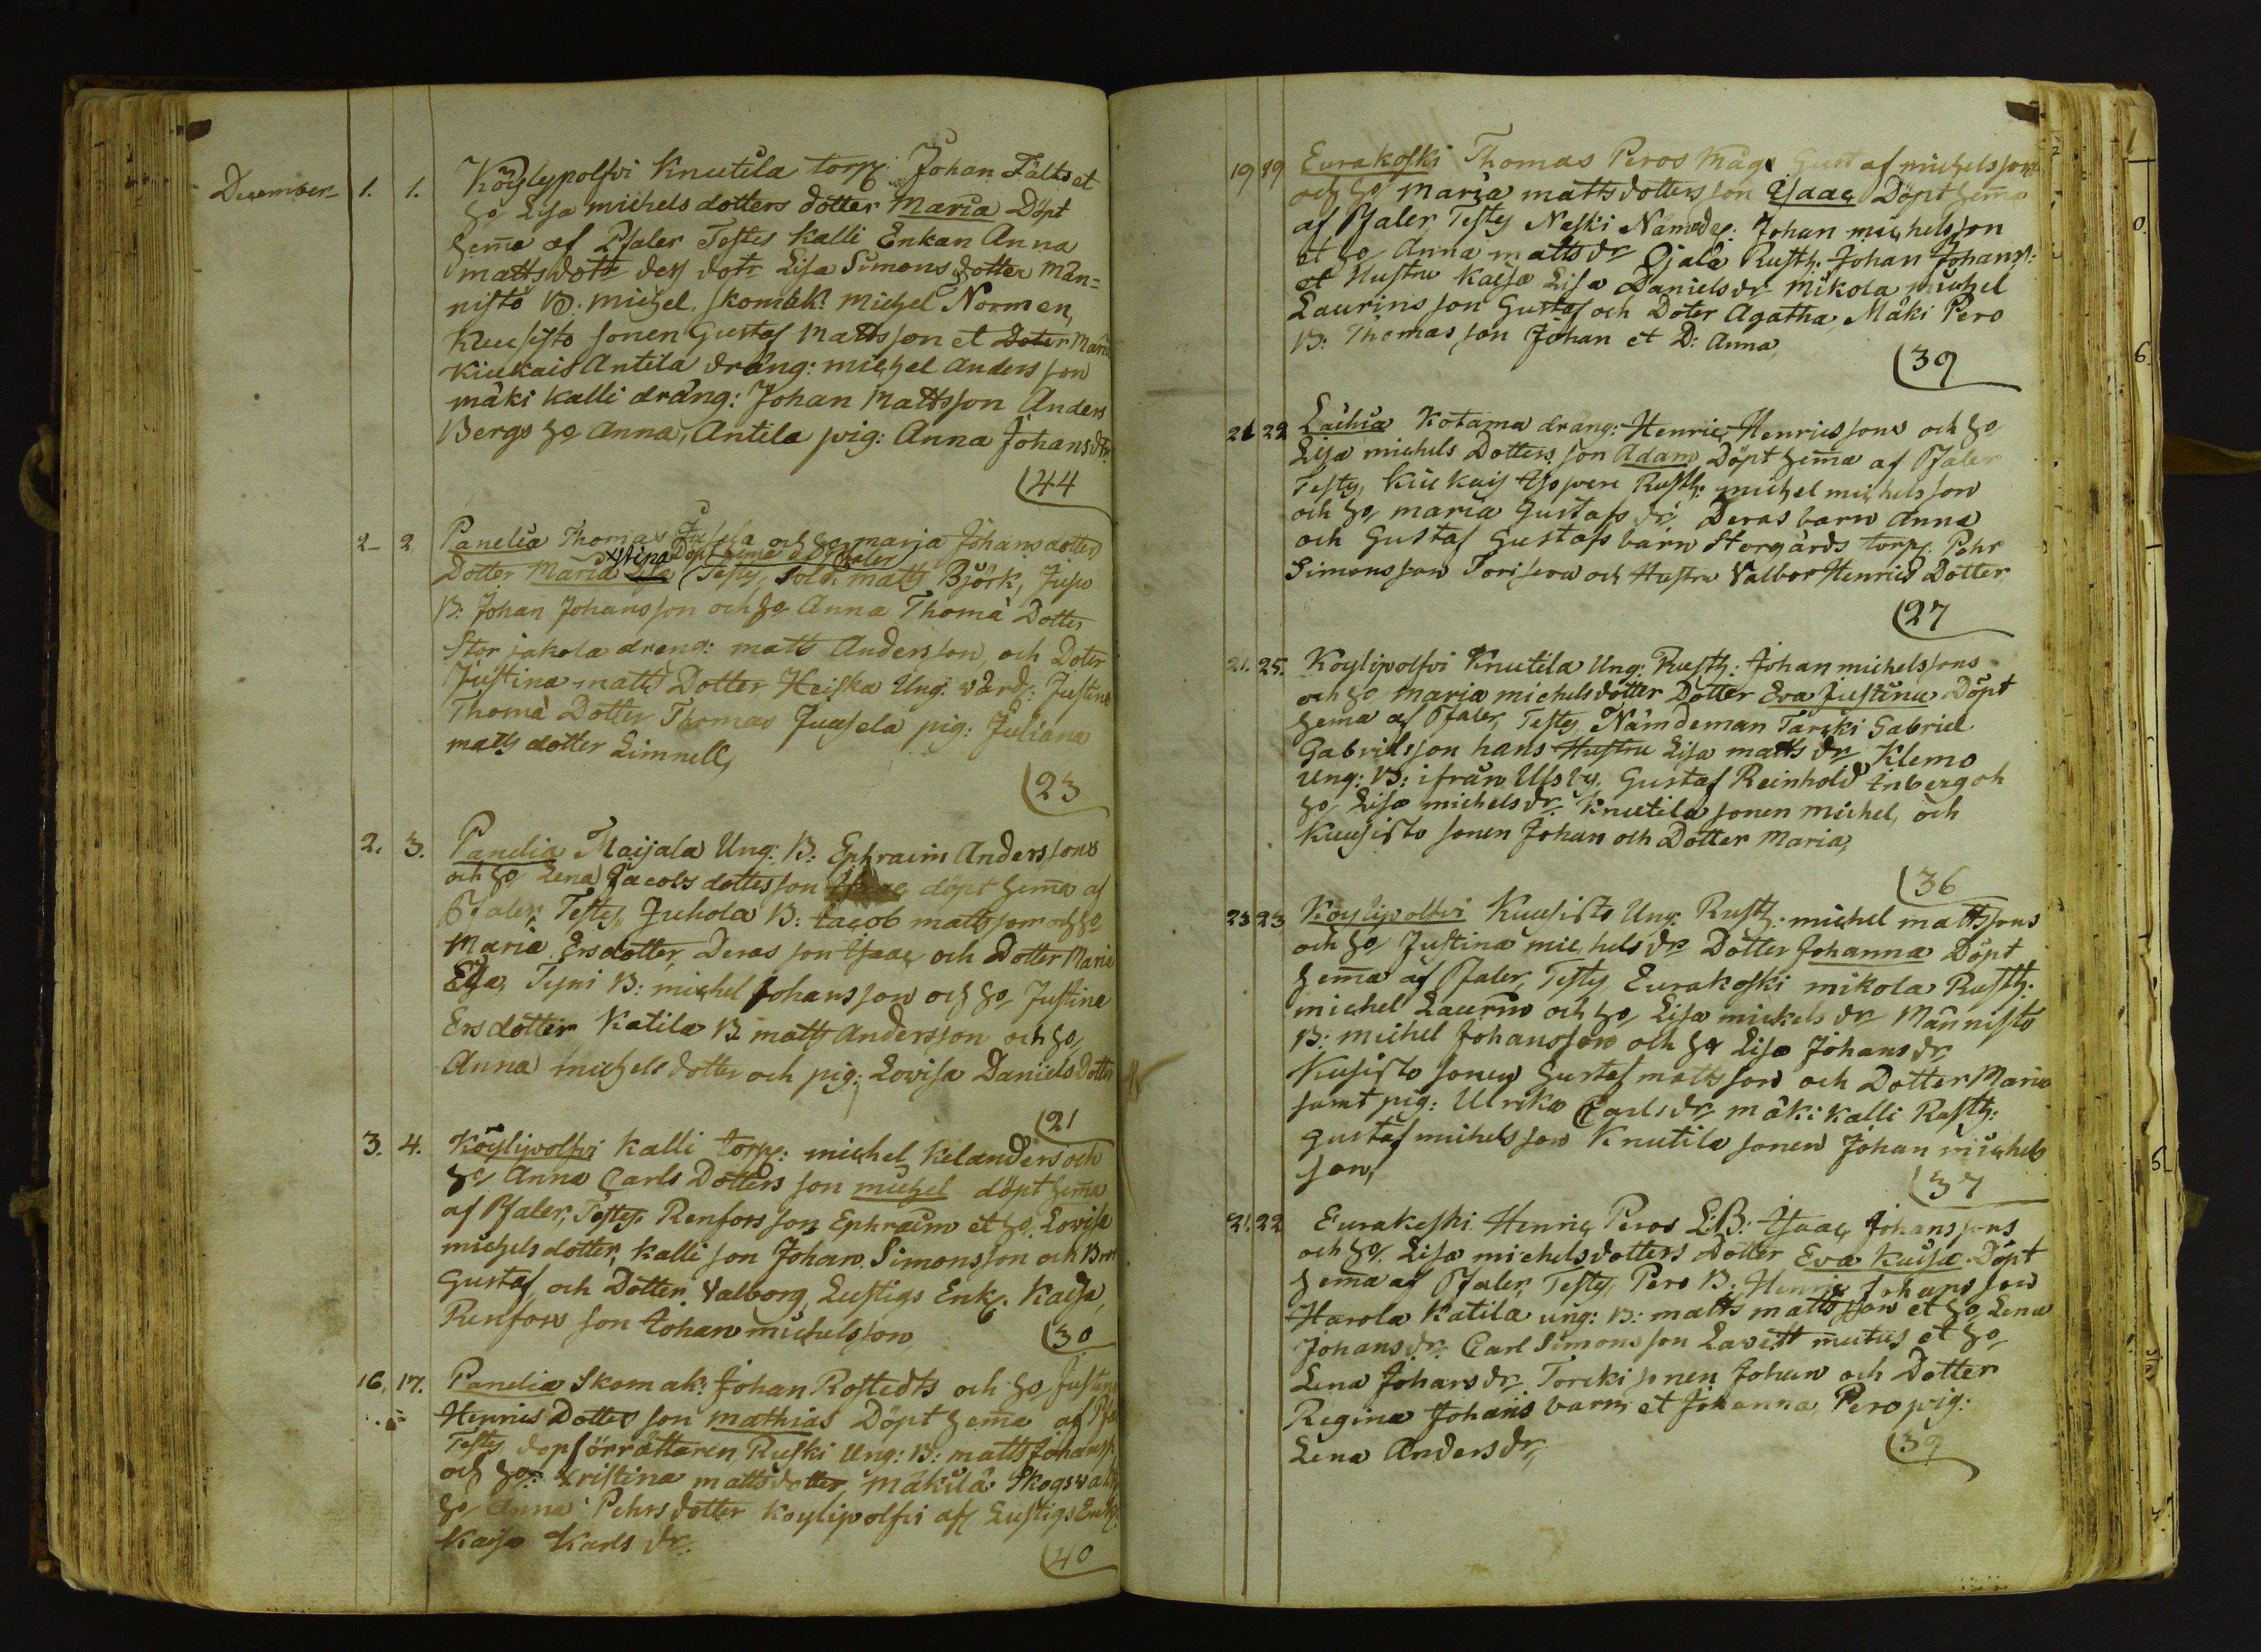 December 1. 1. Köylypolfvi Knutila torp: Johan Fälts et
ho Lisa michels dotters dotter Maria Döpt
hema af Pfaler Testes Kalli Enkan Anna
mattsdott des dotr Lisa Simons dotter Män=
nistö B. michel. skomak: michel Normen,
Kuusisto sonen Gustaf Mattsson et Doter Maria
Kiukais Antila dräng: michel Andersson
mäki Kalli dräng: Johan Mattsson Anders
Bergs ho Anna, Antila pig: Anna Johans dtr
44
2- 2 Panelia Thomas Juusela och ho marja Johans dotter
xstina Döpt hema af Pfaler
Dotter Maria Lisa Testes, sold: matts Björk, Juso
B: Johan Johansson och ho Anna Thomä Dotter
Storjakola dreng: matts Andersson, och Doter
Justina matts Dotter Heiska Ung: värd: Justina
Thomä Dotter Thomas Juusela pig: Juliana
matts dotter Limnell,
23
2. 3. Panelia Maijala Ung: B: Ephraim Anderssons
och ho Lena Jacobs dotters son Isaac döpt hema af
Pfaler, Testes, Juhola B: Jacob mattsson och ho
Maria Ersdotter Deras son Isaac och Dotter Maria
Eva, Tyni B: michel Johansson och ho Justina
Ersdotter Katila B: matts Andersson och ho,
Anna michels dotter och pig: Lovisa Daniels Dotter
21
3. 4. Köylipolfvi Kalli torp: michel Kelanders och
ho Anna Carls Dotters son michel döpt hema
af Pfaler, Testes Renfors son Ephraim et ho Lovisa
michels dotter, Kalli son Johan Simonsson och Bror
Gustaf, och Dotter Valborg, Lustigs Enk: Kaisa,
Renfors son Johan michelsson
30
16. 17. Panelia Skomak: Johan Rostedts och ho Justina
Henrics Dotters son Mathias Döpt hema af
Testes dopförrättaren, Ruski Ung: B: matts Johanss:
och ho: Xristina matts dotter, Mäkilä
ho Anna Pehrs dotter Köylipolfvi af Lustigs Enk:
Kaisa Karls dr.
40
19 19 Eurakoski Thomas Peros Måg Gustaf michelssons
och ho Maria matts dotters son Isaac Döpt hema
af Pfaler, Testes Naski Nämdem: Johan michelsson
et ho Anna matts dr Ojala Rusth: Johan Johanss:
et Hustru Kaisa Lisa Daniels dr Mikola michel
Laurins son Gustaf och Doter Agatha, Mäki Pero
B: Thomas son Johan et D: Anna,
39
21 22 Lächiä Kotama dräng: Henric Henricssons och ho
Lisa michels Dotters son Adam Döpt hema af Pfaler
Testes, Kiukais Rusth: michel michelsson
och ho, maria Gustafs dr. Deras barn Anna
och Gustaf Gustafs barn Storgårds torp: Pehr
Simonsson Torisewa och Hustru Valbor Henrics Dotter
27
21. 25. Koylipolfvi Knutila Ung: Rusth: Johan michelssons
och ho marja michels dotter Dotter Eva Justina Döpt
hema af Pfaler, Testes, Nämdeman Tarcki Gabriel
Gabrielsson hans Hustru Lisa matts dr, Klemo
Ung: B: ifrån Ulfsby, Gustaf Reinhold Enberg och
ho Lisa michels dr Knutila sonen michel, och
Kuusisto sonen Johan och Dotter Maria,
36
23 23 Köylipolfvi Kuusisto Ung: Rusth: michel mattssons
och ho Justina michels dr Dotter Johanna Döpt
hema af Pfaler, Testes, Eurakoski mikola Rusth:
michel Laurin och ho, Lisa mickels dr Männistö
B: michel Johansson och ho Lisa Johans dr,
Kusisto sonen Gustaf mattsson och Dotter Maria
samt pig: Ulrika Carls dr mäki Kalli Rusth:
Gustaf michelsson Knutila sonen Johan michels
son,
37
21. 22 Eurakoski Henric Peros L:B: Isaac Johanssons
och ho. Lisa michels dotters Dotter Eva Kaisa Döpt
hema af Pfaler, Testes, Pero B: Henric Johansson
Harola Katila ung: B: matts mattsson et ho, Lena
Johans dr. Carl Simonsson Lavett mutus et ho,
Lena Johans dr, Torcki sonen Johan och Dotter
Regina Johans barn et Johanna, Pero pig:
Lena Anders dr,
39